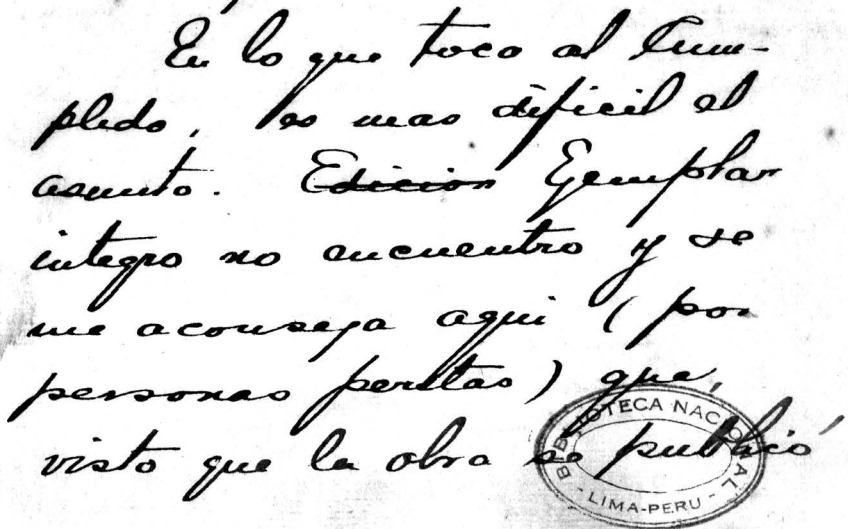 En lo que toca al Cum-
plido, es mas dificil el
asunto. Edicion Ejemplar
integro no encuentro y se
me aconseja aqui (por
personas peritas) que,
visto que la obra se publicó
BIBLIOTECA NACIONAL
LIMA-PERU